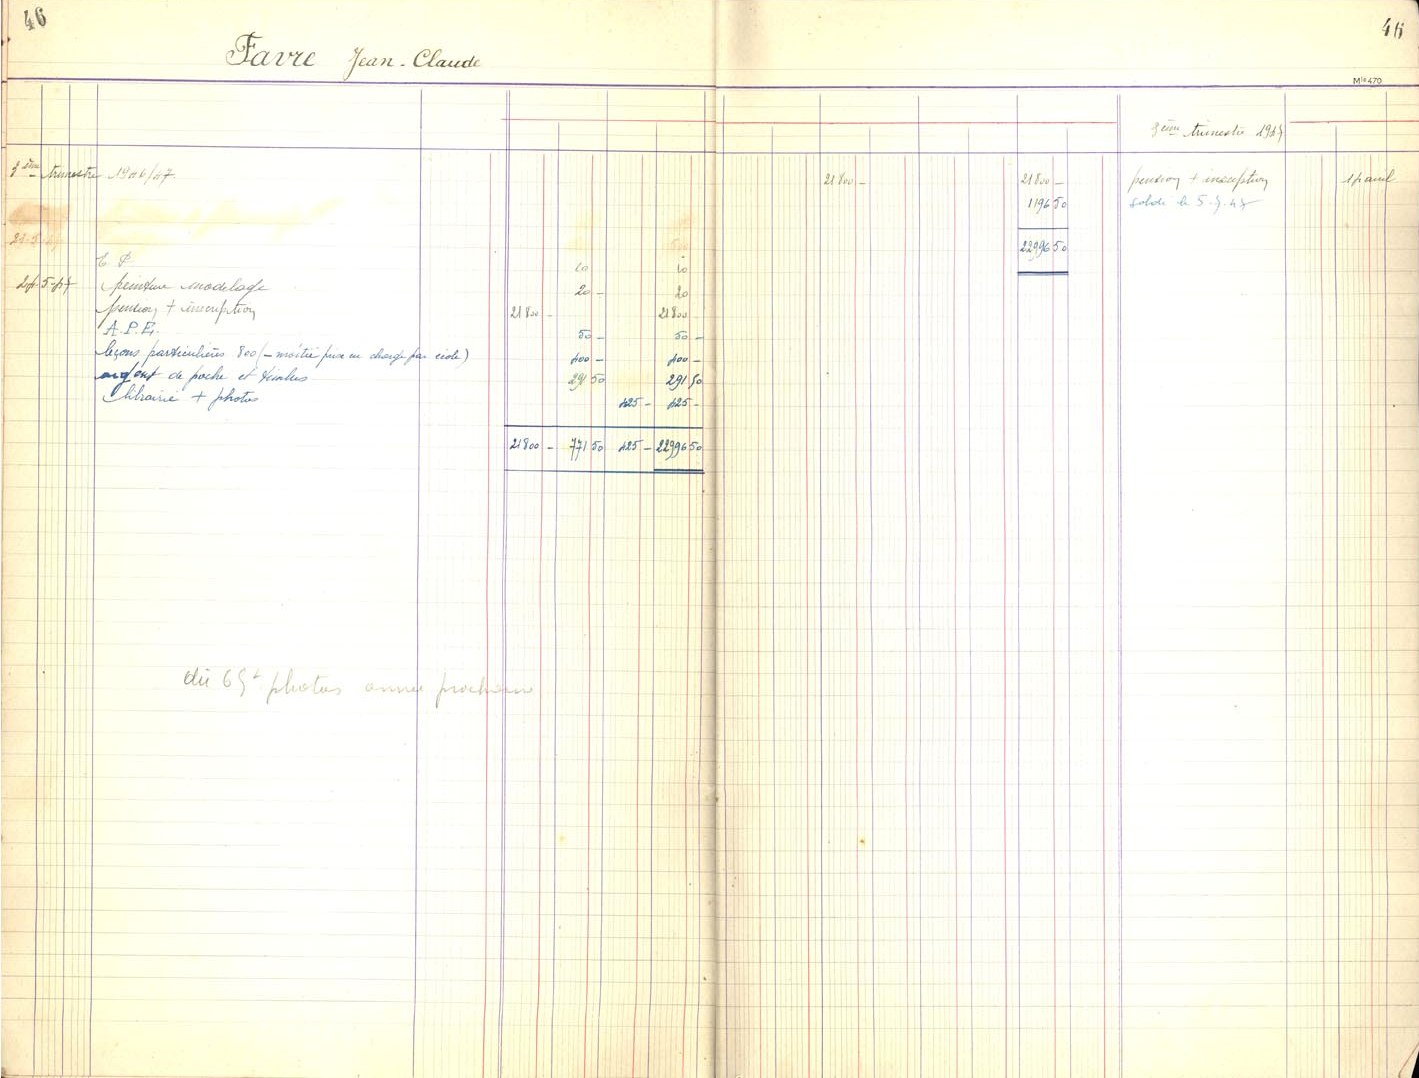 46
46
Favre Jean-Claude
Mle 470
3ème trimestre 1946/47.
E P 10 10
24-5-47 peinture modelage 20 - 20
pension + inscription 21800 - 21800 -
A.P.E. 50 - 50 -
leçons particulières 800 (- moitié prise en charge par école) 400 - 400 -
argent de poche et timbres 291 50 291 50
librairie + photos 425 - 425 -
21800 - 771 50 425 - 22996 50
dû 65 photos année prochaine
3ème trimestre 1947
21800 - 21800 - pension + inscription avril
1196 50 solde le
22996 50